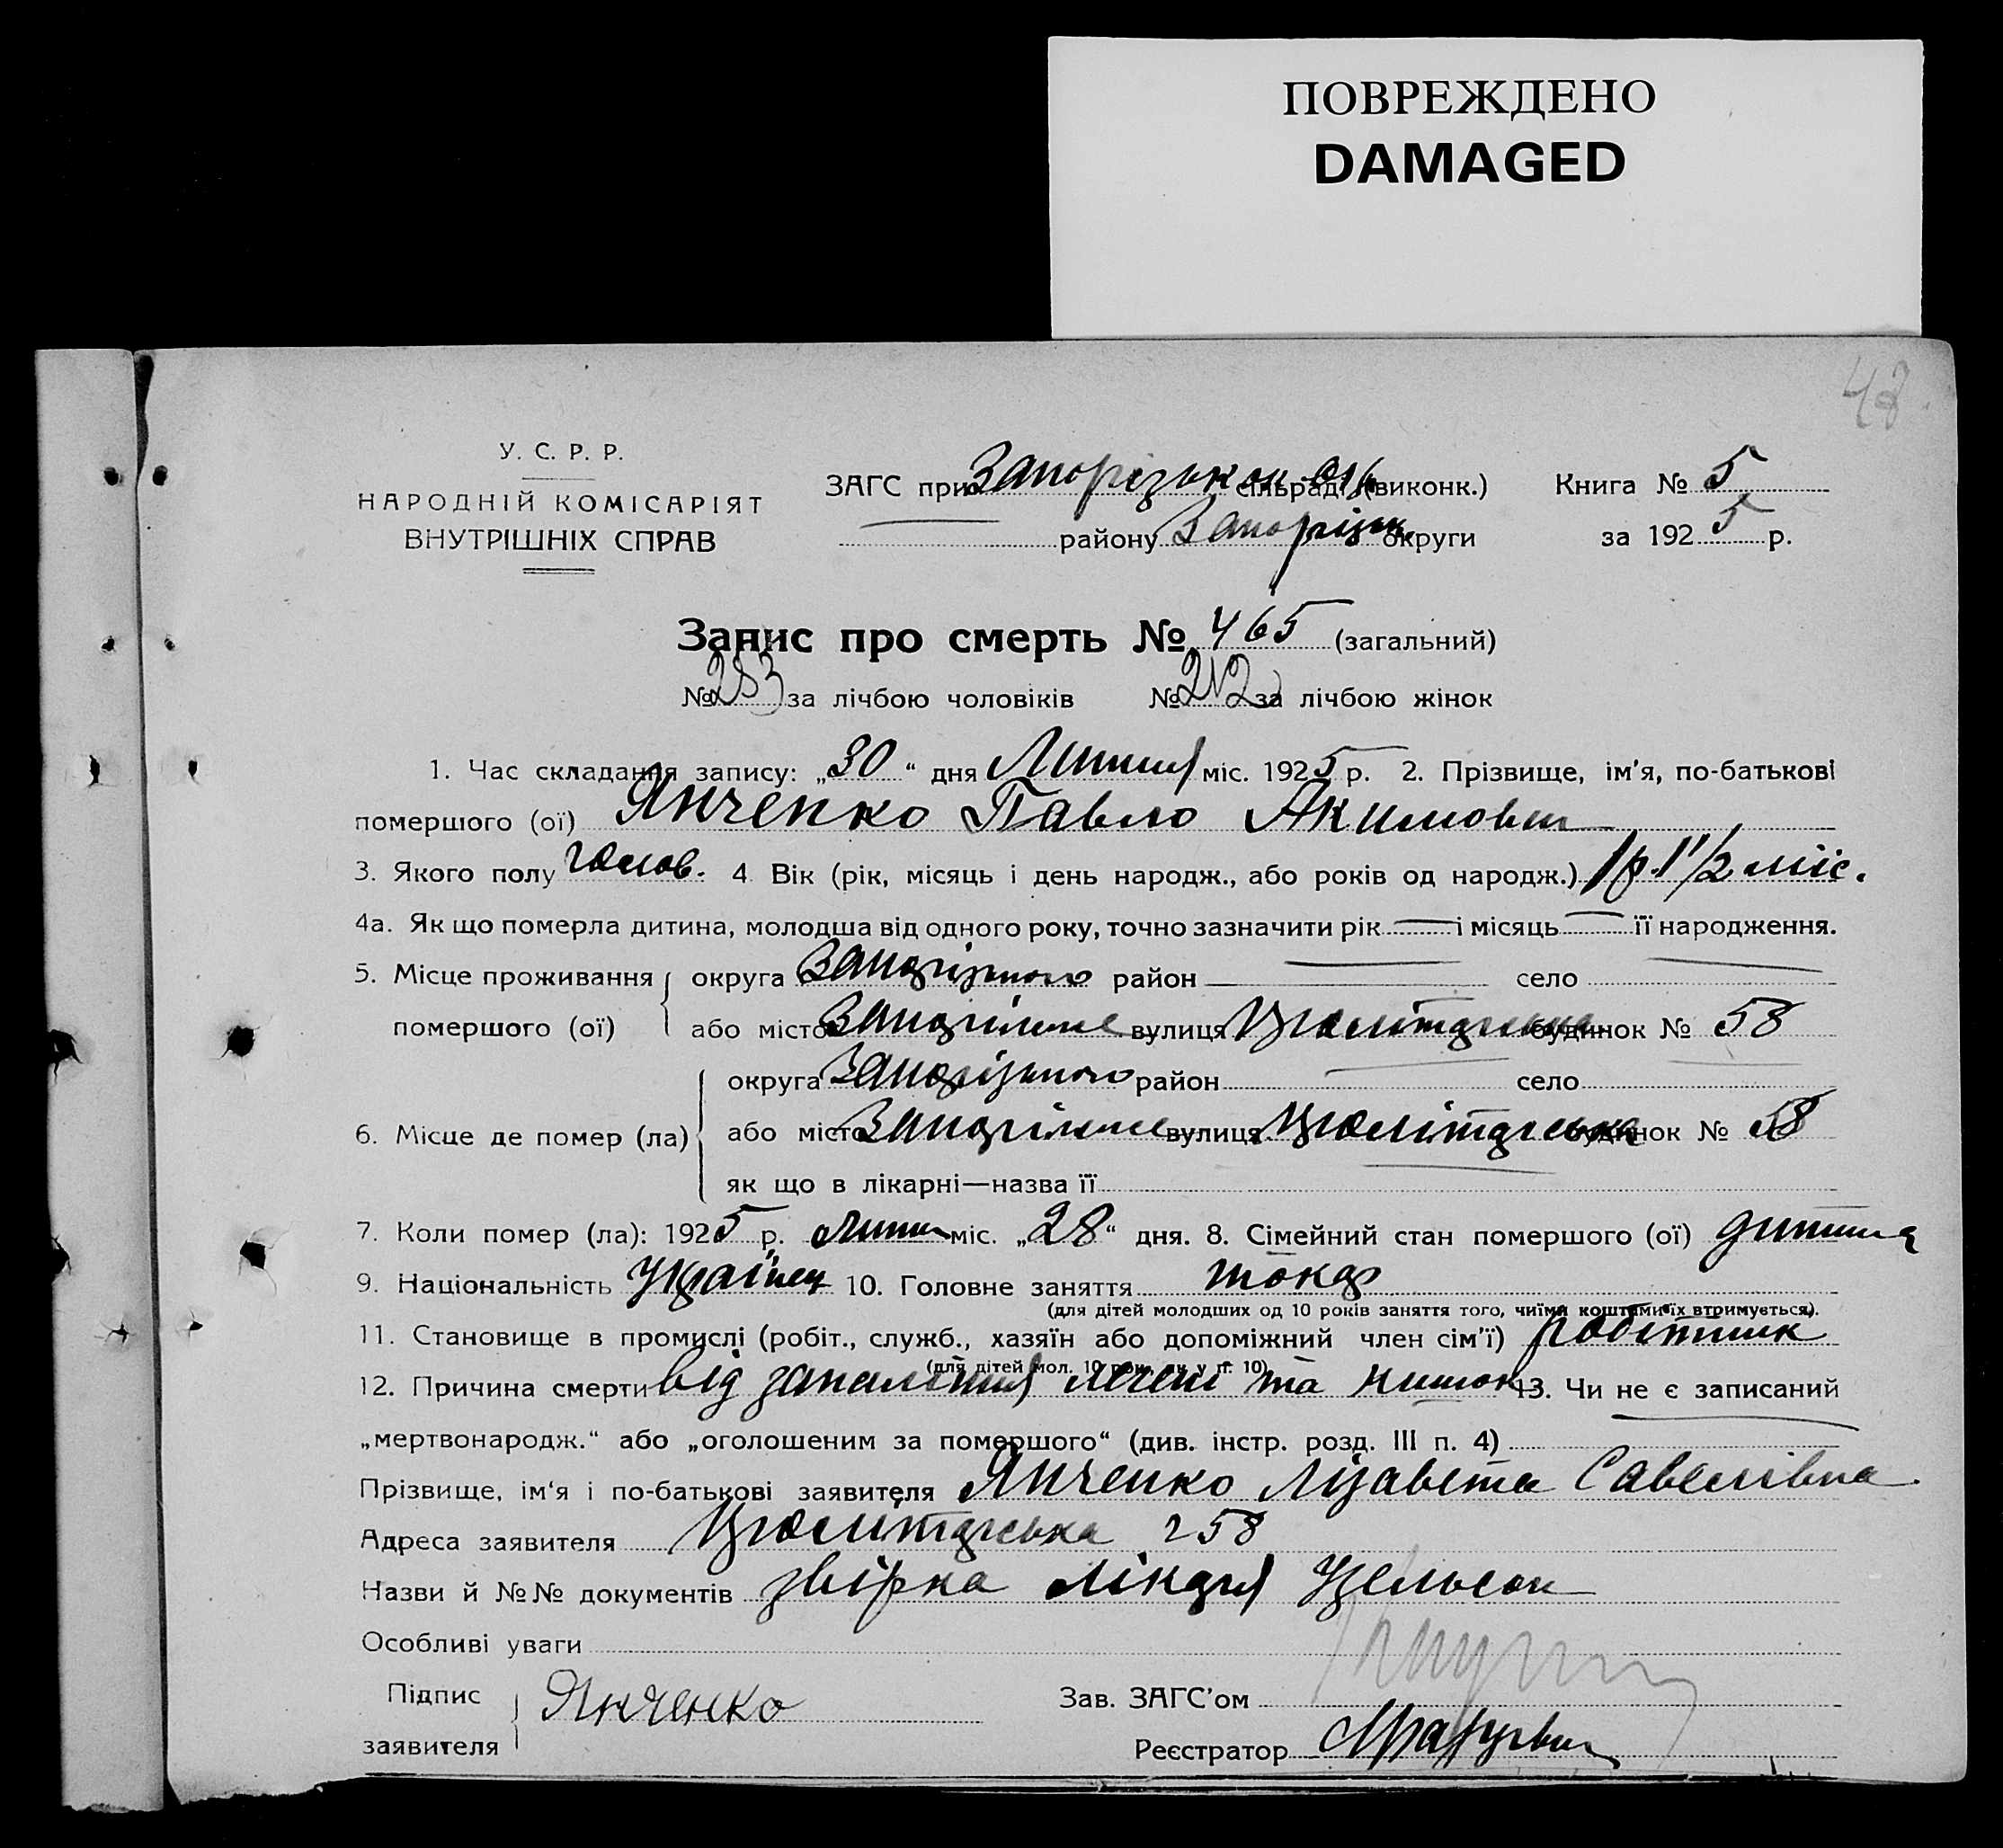 ПОВРЕЖДЕНО
DAMAGED
48
У. С. Р. Р.
НАРОДНІЙ КОМІСАРІЯТ
ВНУТРІШНІХ СПРАВ
ЗАГС при Запорізьком сільраді (виконк.)
району Запорізьк округи
Книга № 5
за 1925 р.
Запис про смерть № 465 (загальний)
№ 253 за лічбою чоловіків № 212 за лічбою жінок
1. Час складання запису: „30“ дня Липня міс. 1925 р. 2. Прізвище, ім’я, по-батькові
помершого (ої) Янченко Павло Якимович
3. Якого полу чолов. 4 Вік (рік, місяць і день народж., або років од народж.) 1 р. 1 1/2 міс.
4а. Як що померла дитина, молодша від одного року, точно зазначити рік — і місяць — її народження.
5. Місце проживання округа Запорізького район — село —
помершого (ої) або місто Запоріжжє вулиця будинок № 58
округа Запорізького район — село —
6. Місце де помер (ла) або місто Запоріжжє вулиця будинок № 58
як що в лікарні—назва її —
7. Коли помер (ла): 1925 р. Липня міс. „28“ дня. 8. Сімейний стан помершого (ої) дитина
9. Національність Українец 10. Головне заняття токар
(для дітей молодших од 10 років заняття того, чиїми коштами їх втримується).
11. Становище в промислі (робіт., служб., хазяїн або допоміжний член сім’ї) робітник
(для дітей мол. 10 рок. як у п. 10)
12. Причина смерти від запалення печені та кишок 13. Чи не є записаний
„мертвонародж.“ або „оголошеним за помершого“ (див. інстр. розд. III п. 4) —
Прізвище, ім‘я і по-батькові заявителя Янченко Лізавета Савелівна
Адреса заявителя 58
Назви й №№ документів звірка лікаря
Особливі уваги
Підпис
заявителя
Янченко
Зав. ЗАГС’ом
Реєстратор